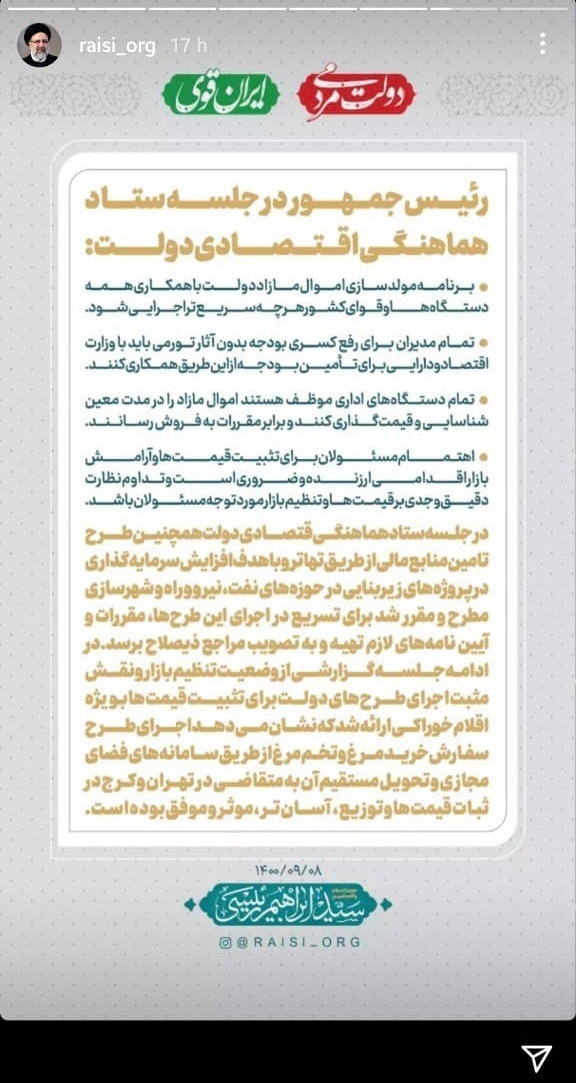 raisi_org 17 h
دولت مردمی ایران قوی
رئیس جمهور در جلسه ستاد
هماهنگی اقتصادی دولت:
● برنامه مولدسازی اموال مازاد دولت با همکاری همه
دستگاه‌ها و قوای کشور هرچه سریع‌تر اجرایی شود.
● تمام مدیران برای رفع کسری بودجه بدون آثار تورمی باید با وزارت
اقتصاد و دارایی برای تأمین بودجه از این طریق همکاری کنند.
● تمام دستگاه‌های اداری موظف هستند اموال مازاد را در مدت معین
شناسایی و قیمت‌گذاری کنند و برابر مقررات به فروش رسانند.
● اهتمام مسئولان برای تثبیت قیمت‌ها و آرامش
بازار اقدامی ارزنده و ضروری است و تداوم نظارت
دقیق و جدی بر قیمت‌ها و تنظیم بازار مورد توجه مسئولان باشد.
در جلسه ستاد هماهنگی قتصادی دولت همچنین طرح
تامین منابع مالی از طریق تهاتر و با هدف افزایش سرمایه گذاری
در پروژه‌های زیربنایی در حوزه‌های نفت، نیرو و راه و شهرسازی
مطرح و مقرر شد برای تسریع در اجرای این طرح‌ها، مقررات و
آیین نامه‌های لازم تهیه و به تصویب مراجع ذیصلاح برسد. در
ادامه جلسه گزارشی از وضعیت تنظیم بازار و نقش
مثبت اجرای طرح های دولت برای تثبیت قیمت‌ها بویژه
اقلام خوراکی ارائه شد که نشان می دهد اجرای طرح
سفارش خرید مرغ و تخم مرغ از طریق سامانه‌های فضای
مجازی و تحویل مستقیم آن به متقاضی در تهران و کرج در
ثبات قیمت‌ها و توزیع، آسان‌تر، موثر و موفق بوده است.
۱۴۰۰/۰۹/۰۸
سید ابراهیم رئیسی
@RAISI_ORG